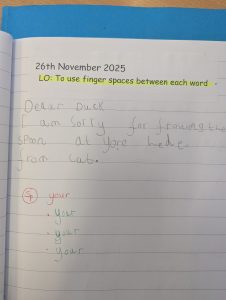 26th November 2025
LO: To use finger spaces between each word
Dear Duck
I am sorry for frowing the
spoon at yore hede.
from cat.
Sp your
. your
. your
. your